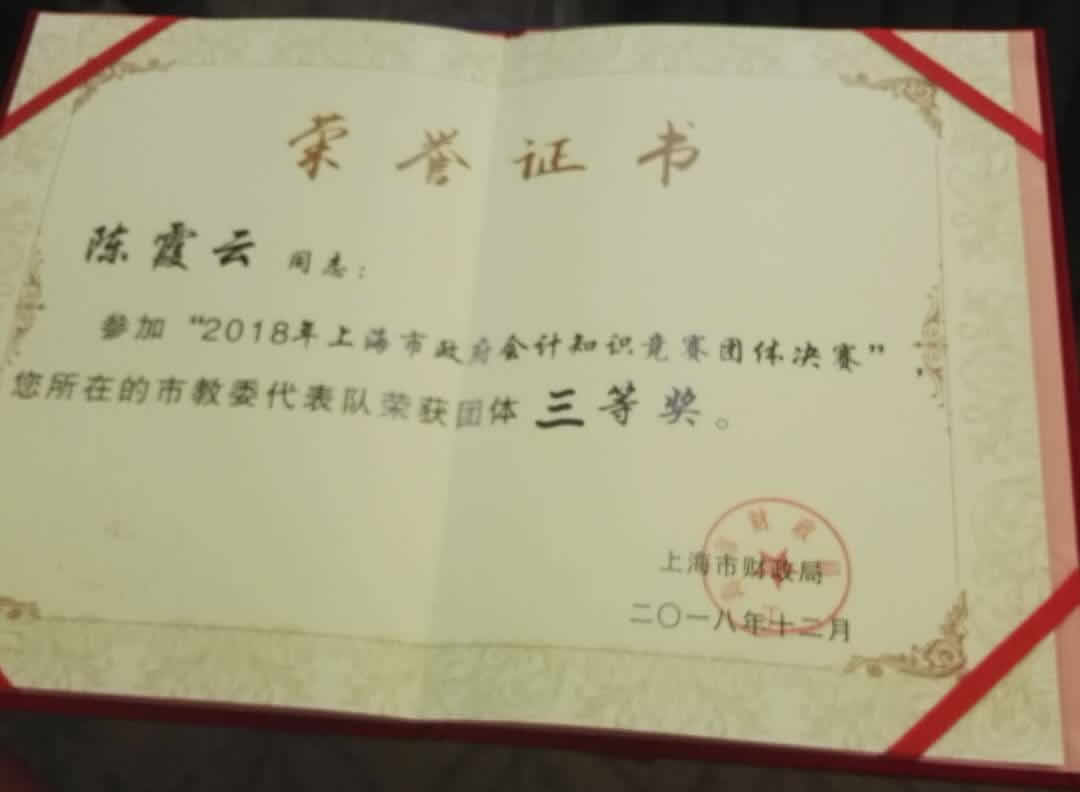 荣誉证书
陈霞云 同志：
参加“2018年上海市政府会计知识竞赛团体决赛”，
您所在的市教委代表队荣获团体三等奖。
上海市财政局
二〇一八年十二月